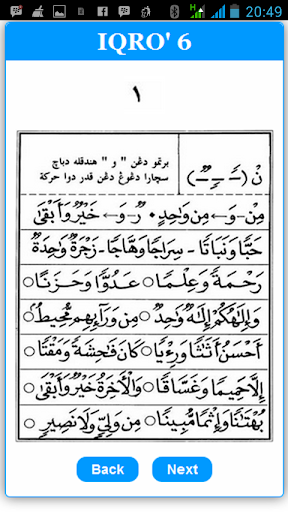 20:49
IQRO' 6
١
نْ (ـً ـٍ ـٌ)
برتمو دڠن " و " هندقله دباچ
سچارا دغوڠ دڠن قدر دوا حركة
مِنْ - وَ ← مِن وَاحِدٍ • رٌ - وَ ← خَيْرٌ وَأَبْقَىٰ
حَبًّا وَنَبَاتًا - سِرَاجًا وَهَّاجًا - زَجْرَةٌ وَٰحِدَةٌ
رَحْمَةً وَعِلْمًا ○ عَدُوًّا وَحَزَنًا ○
وَإِلَٰهُكُمْ إِلَٰهٌ وَٰحِدٌ ○ مِن وَرَآئِهِم مُّحِيطٌ ○
أَحْسَنُ أَثَٰثًا وَرِءْيًا ○ كَانَ فَٰحِشَةً وَمَقْتًا ○
إِلَّا حَمِيمًا وَغَسَّاقًا ○ وَالْآخِرَةُ خَيْرٌ وَأَبْقَىٰ ○
بُهْتَٰنًا وَإِثْمًا مُّبِينًا ○ مِن وَلِيٍّ وَلَا نَصِيرٍ ○
Back Next